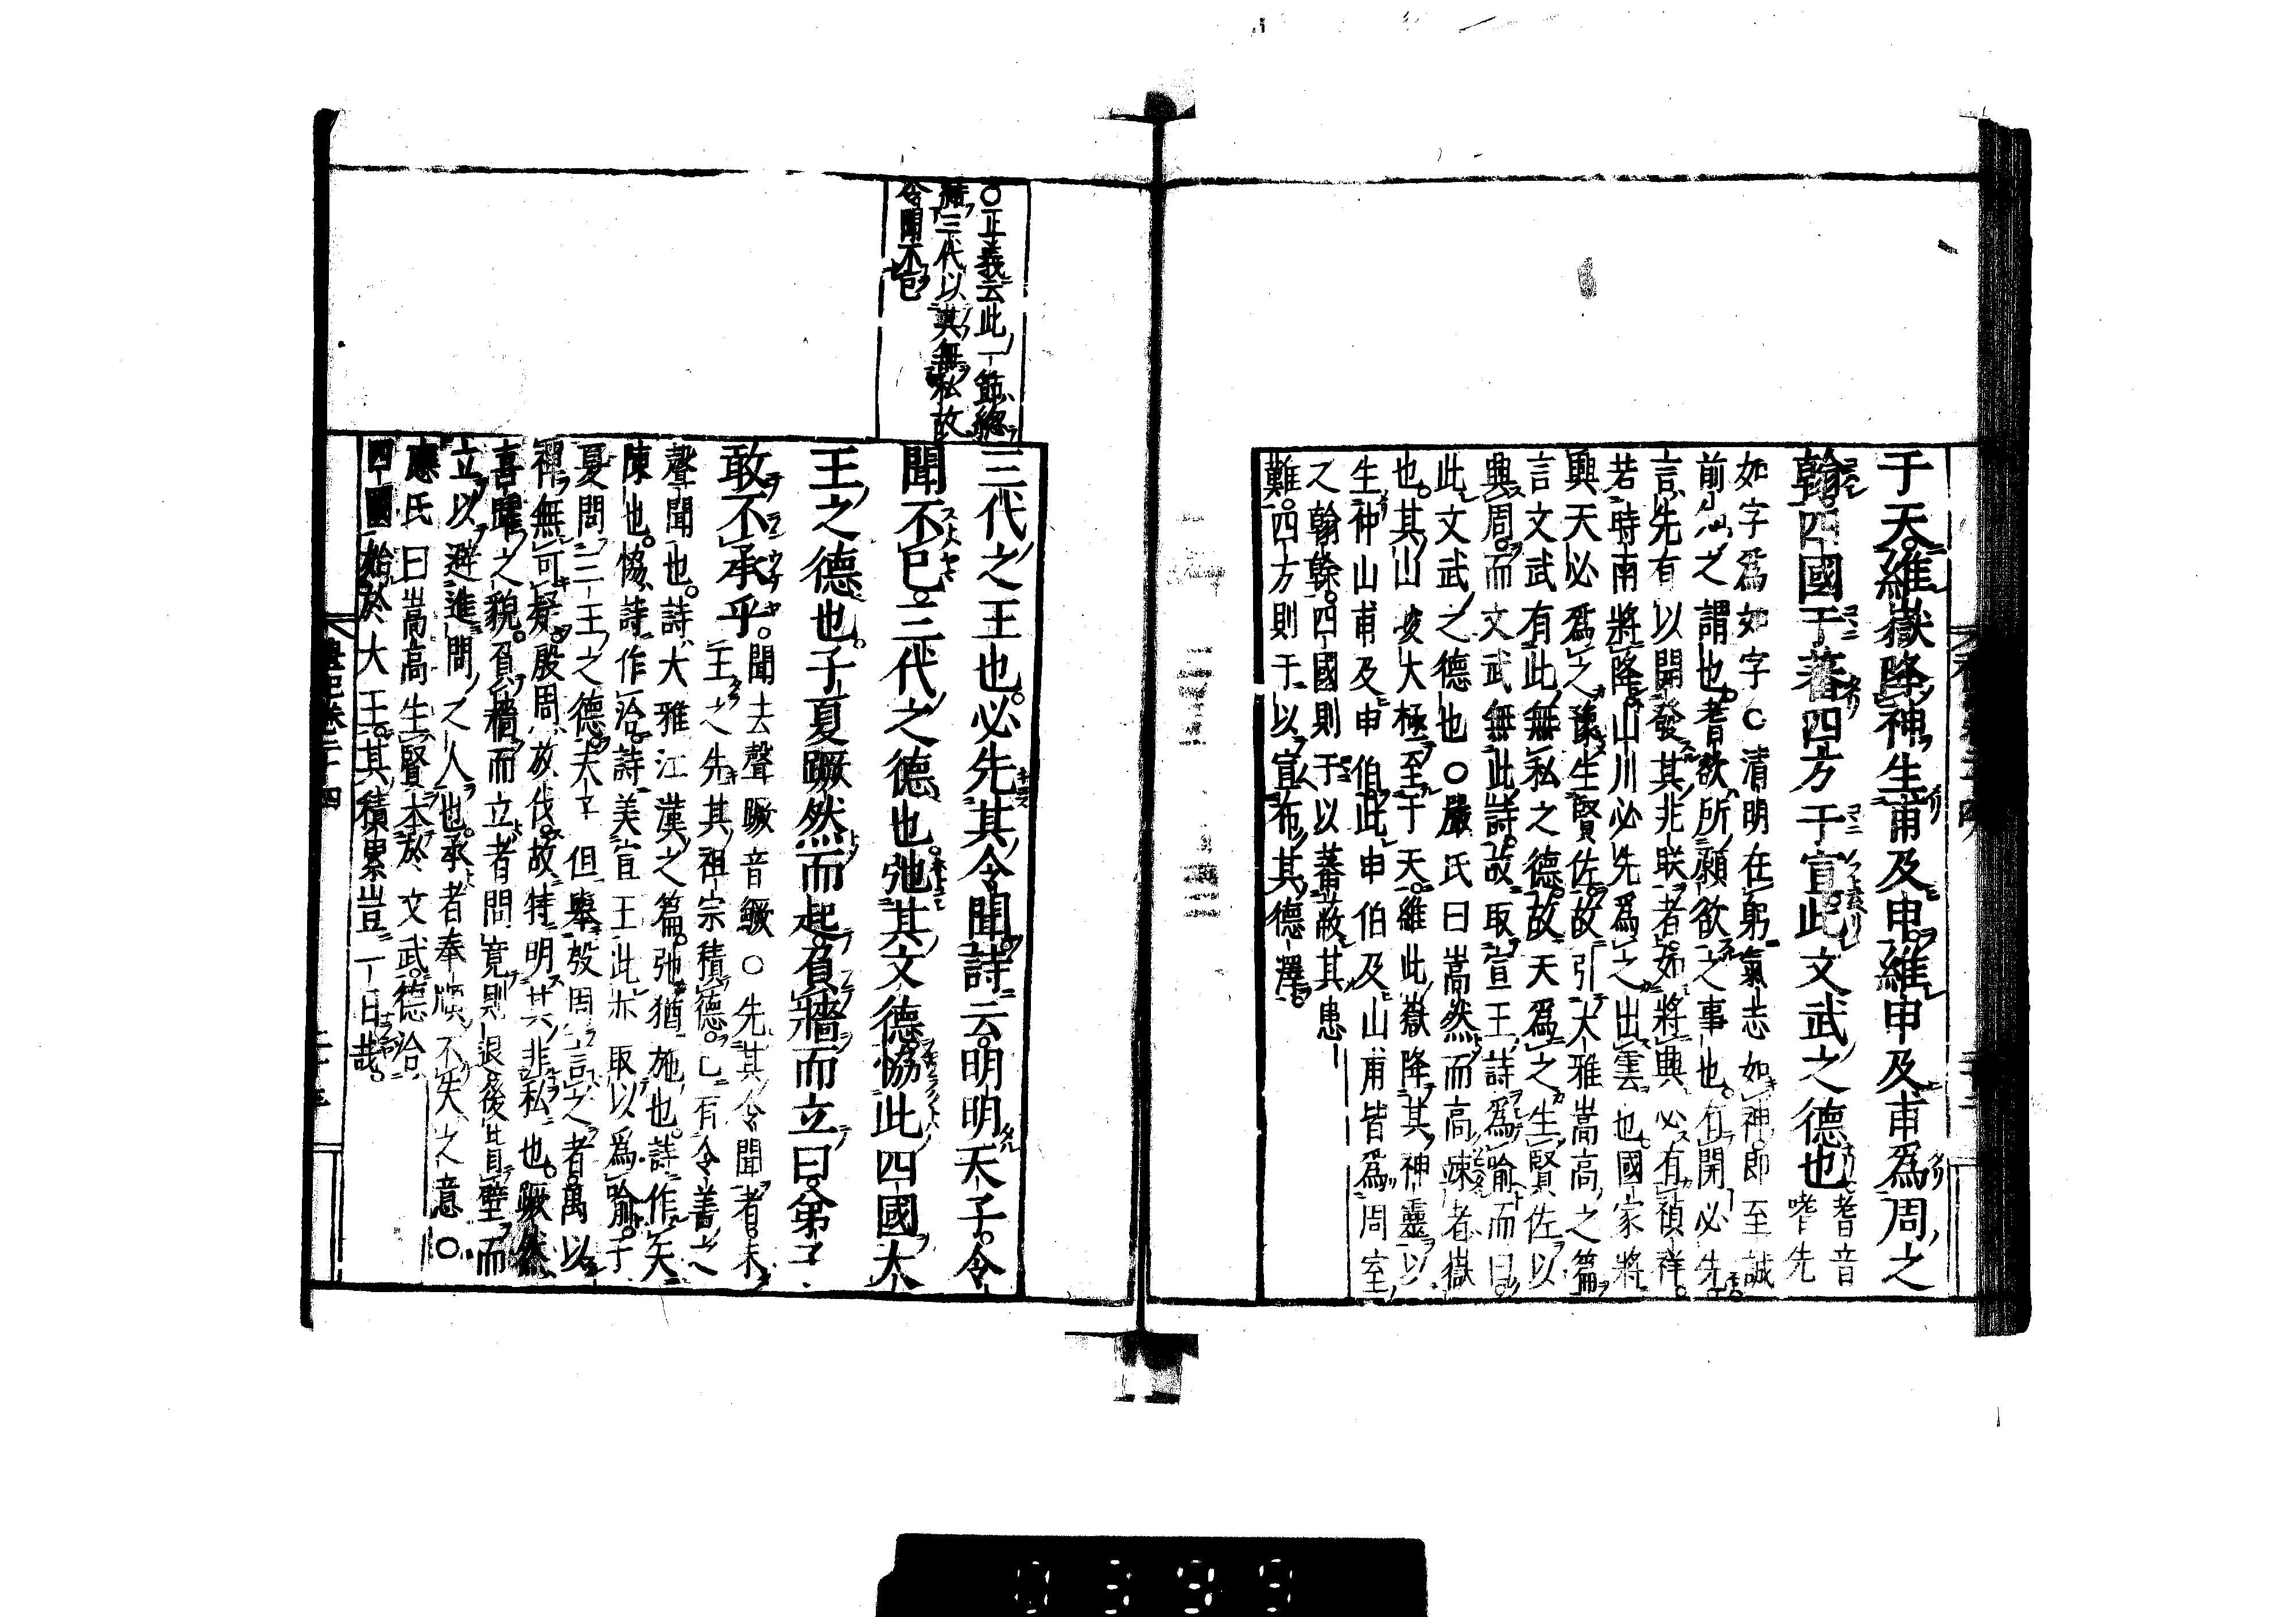 于天維嶽降神生甫及申維申及甫爲周之
翰四國于蕃四方于宣此文武之德也耆音
嗜先
如字爲如字○清明在躬氣志如神卽至誠
前知之謂也耆欲所願欲之事也有開必先
言先有以開發其兆朕者如將興必有禎祥
若時雨將降山川必先爲之出雲也國家將
興天必爲之豫生賢佐故引大雅嵩高之篇
言文武有此無私之德故天爲之生賢佐以
興周而文武無此詩故取宣王詩爲喻而曰
此文武之德也○嚴氏曰嵩然而高竦者嶽
也其山峻大極至于天維此嶽降其神靈以
生仲山甫及申伯此申伯及山甫皆爲周室
之翰榦四國則于以蕃蔽其患
難四方則于以宣布其德澤
○正義云此一節總
結三代以其無私故
令聞不已
三代之王也必先其令聞詩云明明天子令
聞不已三代之德也弛其文德協此四國大
王之德也子夏蹶然而起負牆而立曰弟子
敢不承乎聞去聲蹶音鱖○先其令聞者未
王之先其祖宗積德已有令善之
聲聞也詩大雅江漢之篇弛猶施也詩作矢
陳也協詩作洽詩美宣王此亦取以爲喻子
夏問三王之德夫子但舉殷周言之者禹以
禪無可疑殷周放伐故特明其非私也蹶然
喜躍之貌負牆而立者問竟則退後背壁而
立以避進問之人也承者奉順不失之意○
應氏曰嵩高生賢本於文武德洽
四國始於大王其積累豈一日哉
禮記卷二十四